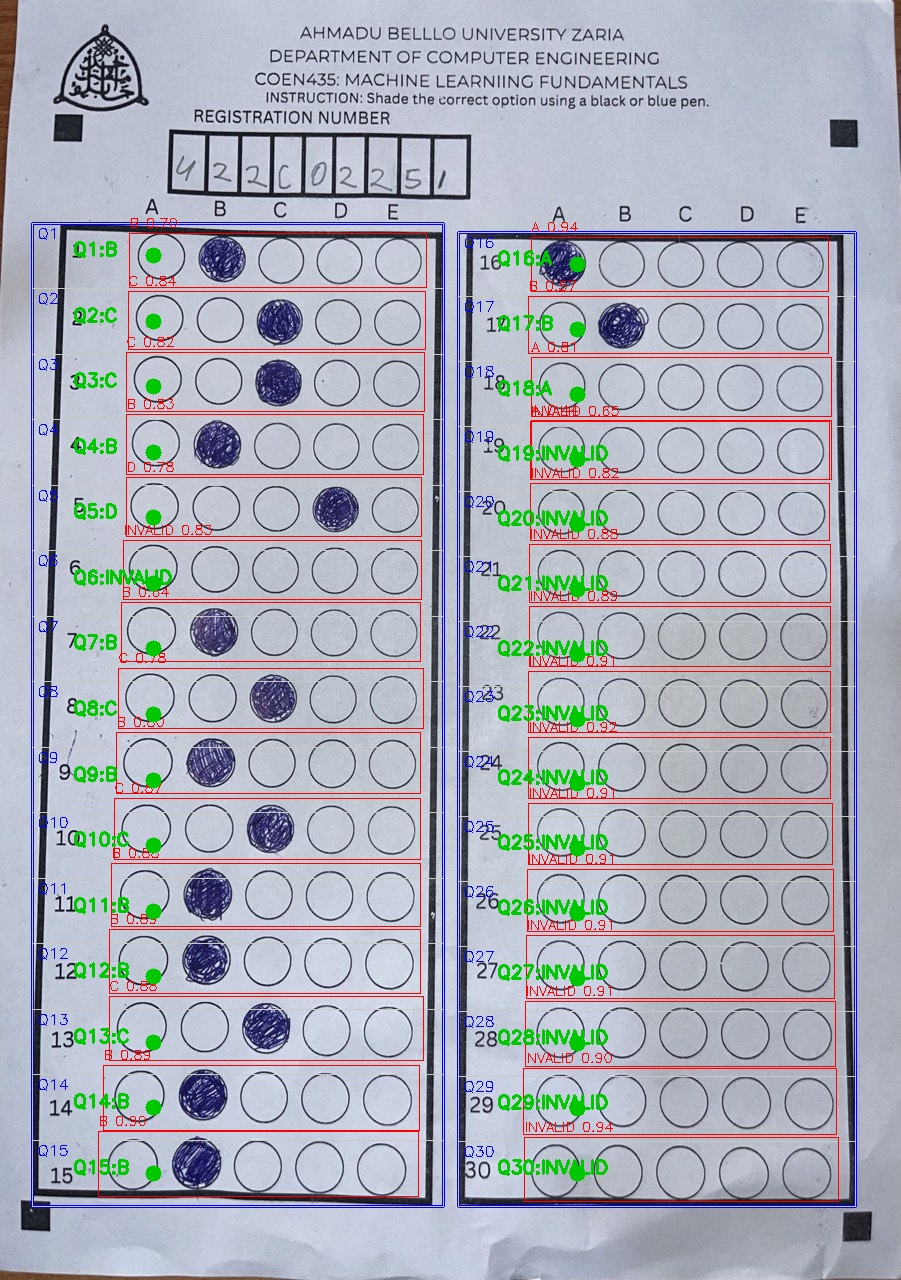 AHMADU BELLLO UNIVERSITY ZARIA
DEPARTMENT OF COMPUTER ENGINEERING
COEN435: MACHINE LEARNIING FUNDAMENTALS
INSTRUCTION: Shade the correct option using a black or blue pen.
REGISTRATION NUMBER
4 2 2 C 0 2 2 5 1
A B C D E
Q1 1 Q1:B
Q2 2 Q2:C C 0.84
Q3 3 Q3:C C 0.82
Q4 4 Q4:B B 0.83
5 Q5:D D 0.78
Q6 6 Q6:INVALID INVALID 0.83
Q7 7 Q7:B B 0.64
Q8 8 Q8:C C 0.78
Q9 9 Q9:B
Q10 10 Q10:C C 0.87
Q11 11 Q11:B
Q12 12 Q12:B
Q13 13 Q13:C
Q14 14 Q14:B B 0.89
Q15 15 Q15:B B 0.90
A B C D E
Q16 16 Q16:A A 0.94
Q17 17 Q17:B
Q18 18 Q18:A
Q19 19 Q19:INVALID
20 Q20:INVALID INVALID 0.82
21 Q21:INVALID INVALID 0.88
22 Q22:INVALID INVALID 0.89
23 Q23:INVALID INVALID 0.91
24 Q24:INVALID INVALID 0.92
Q25 25 Q25:INVALID INVALID 0.91
Q26 26 Q26:INVALID INVALID 0.91
Q27 27 Q27:INVALID INVALID 0.91
Q28 28 Q28:INVALID INVALID 0.91
Q29 29 Q29:INVALID INVALID 0.90
Q30 30 Q30:INVALID INVALID 0.94